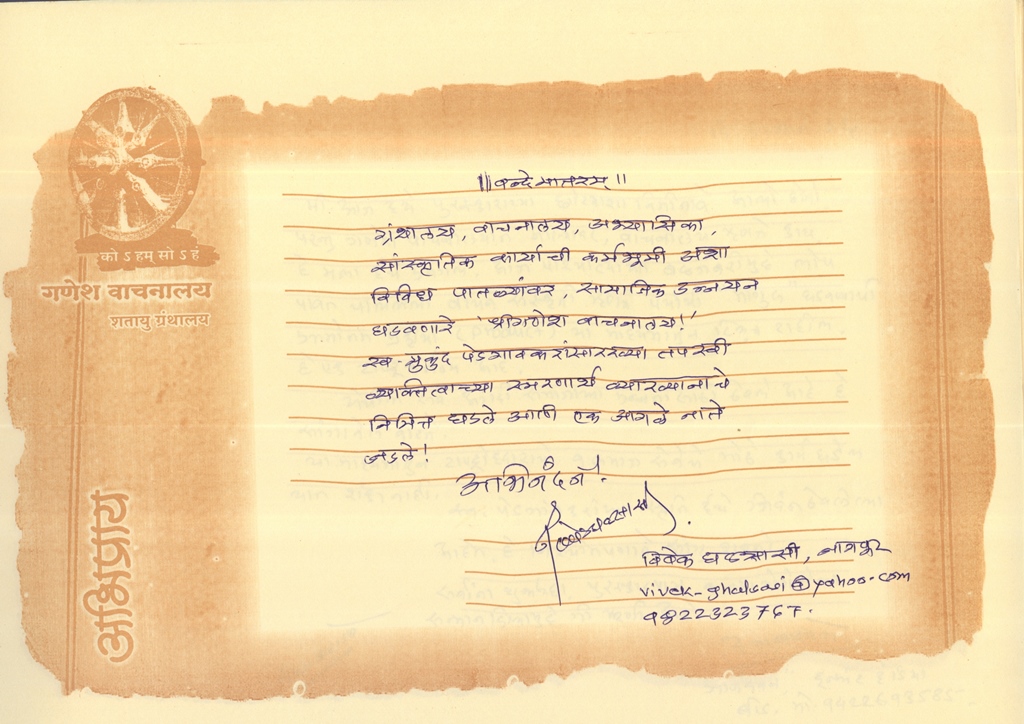 को ऽ हम् सो ऽ हं
गणेश वाचनालय
शतायु ग्रंथालय
अभिप्राय
||वन्दे मातरम् ||
ग्रंथालय, वाचनालय, अभ्यासिका,
सांस्कृतिक कार्याची कर्मभूमी अशा
विविध पातळ्यांवर, सामाजिक उन्नयन
घडवणारे 'श्रीगणेश वाचनालय!'
स्व. मुकुंद पेडगावकरांसारख्या तपस्वी
व्यक्तित्वाच्या स्मरणार्थ व्याख्यानाचे
निमित्त घडले आणि एक आगळे नाते
जडले!
अभिनंदन!
विवेक घळसासी, नागपूर
vivek_ghalsasi@yahoo.com
9822323767.